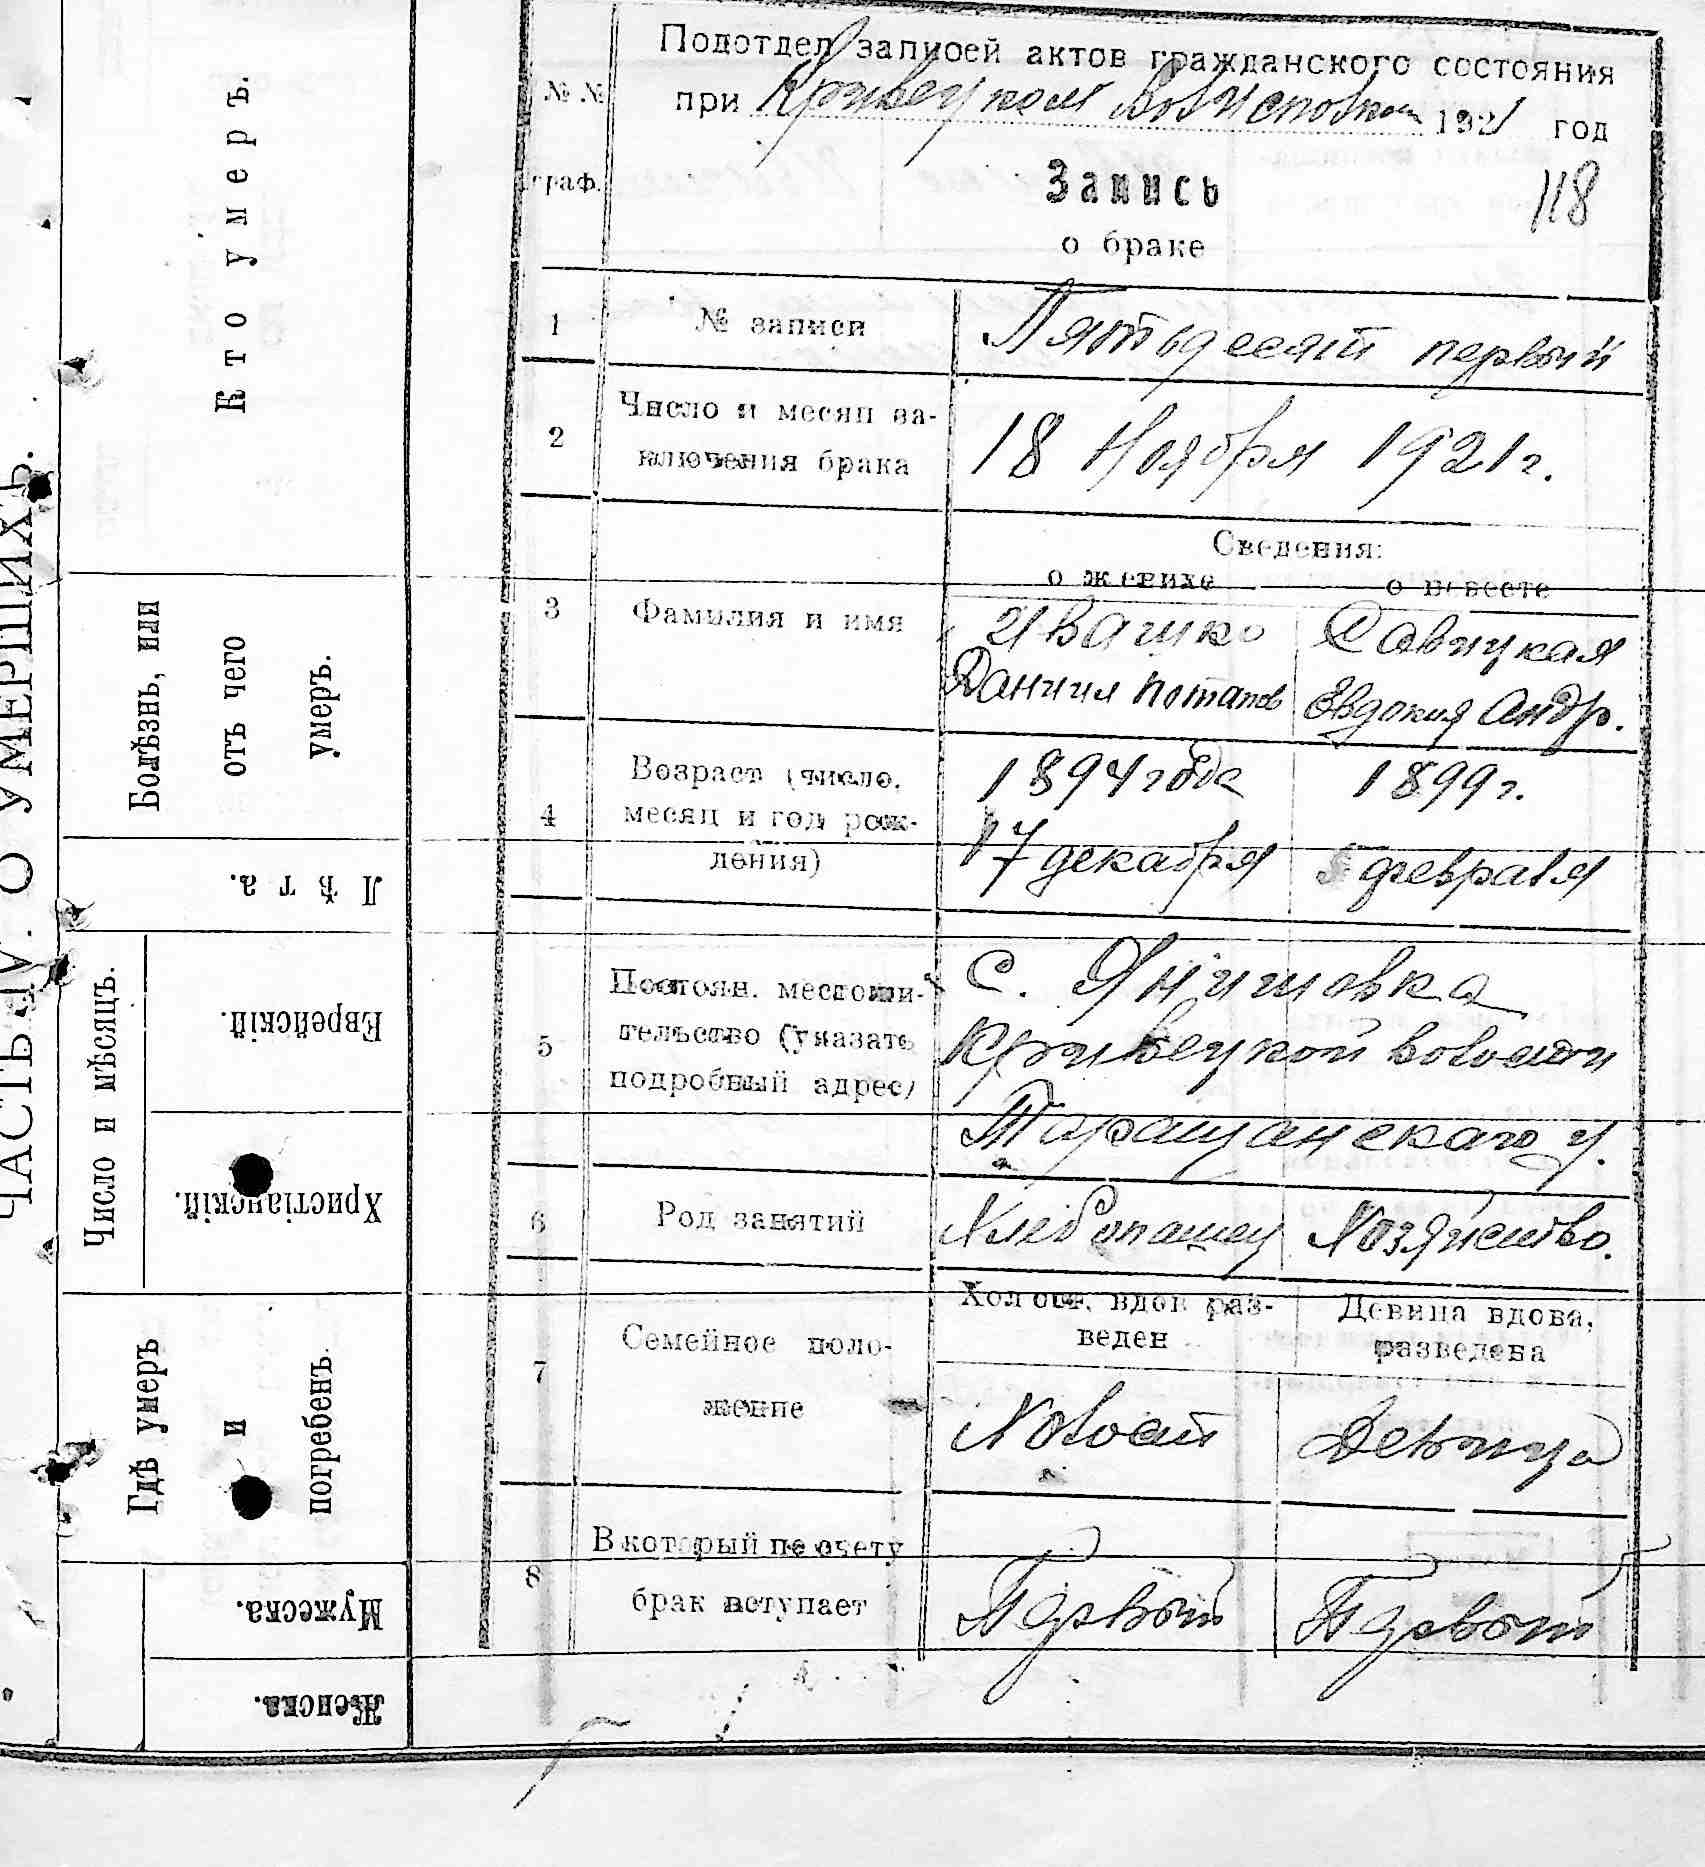 ЧАСТЬ IV. О УМЕРШИХЪ.
Кто умеръ.
Болѣзнь, или
отъ чего
умеръ.
Лѣта.
Число и мѣсяцъ.
Еврейскій.
Христіанскій.
Гдѣ умеръ
и
погребенъ.
Мужеска.
Женска.
№№
граф.
Подотдел записей актов гражданского состояния
при Кривецком Волисполком 1921 год
Запись
118
о браке
1 № записи Пятьдесят первый
2 Число и месяц за-
ключения брака 18 Ноября 1921 г.
Сведения:
о женихе о невесте
3 Фамилия и имя Ивашко Савицкая
Даниил Потапов Евдокия Андр.
4 Возраст (число, 1894 года 1899 г.
месяц и год рож-
дения) 17 декабря 5 февраля
5 Постоян. местожи- с. Янишовка
тельство (указать Кривецкой волости
подробный адрес) Таращанскаго у.
6 Род занятий Хлебопашец Хозяйство.
7 Семейное поло-
жение
Холост, вдов, раз- Девица вдова,
веден разведена
Холост Девица
8 В который по счету
брак вступает Первый Первый